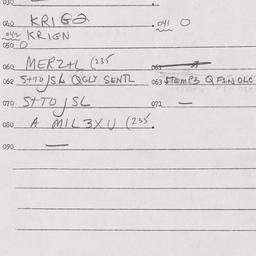 030
040 KRIG2 041 0
042 KRIGN
050 0
060 MERZ+L (235 061
062 S++OJSL QGLY SENTL 063 $TEMP3 QFIN OLC
070 S++OJSL 071 —
080 A MIL3XU (235
090 —